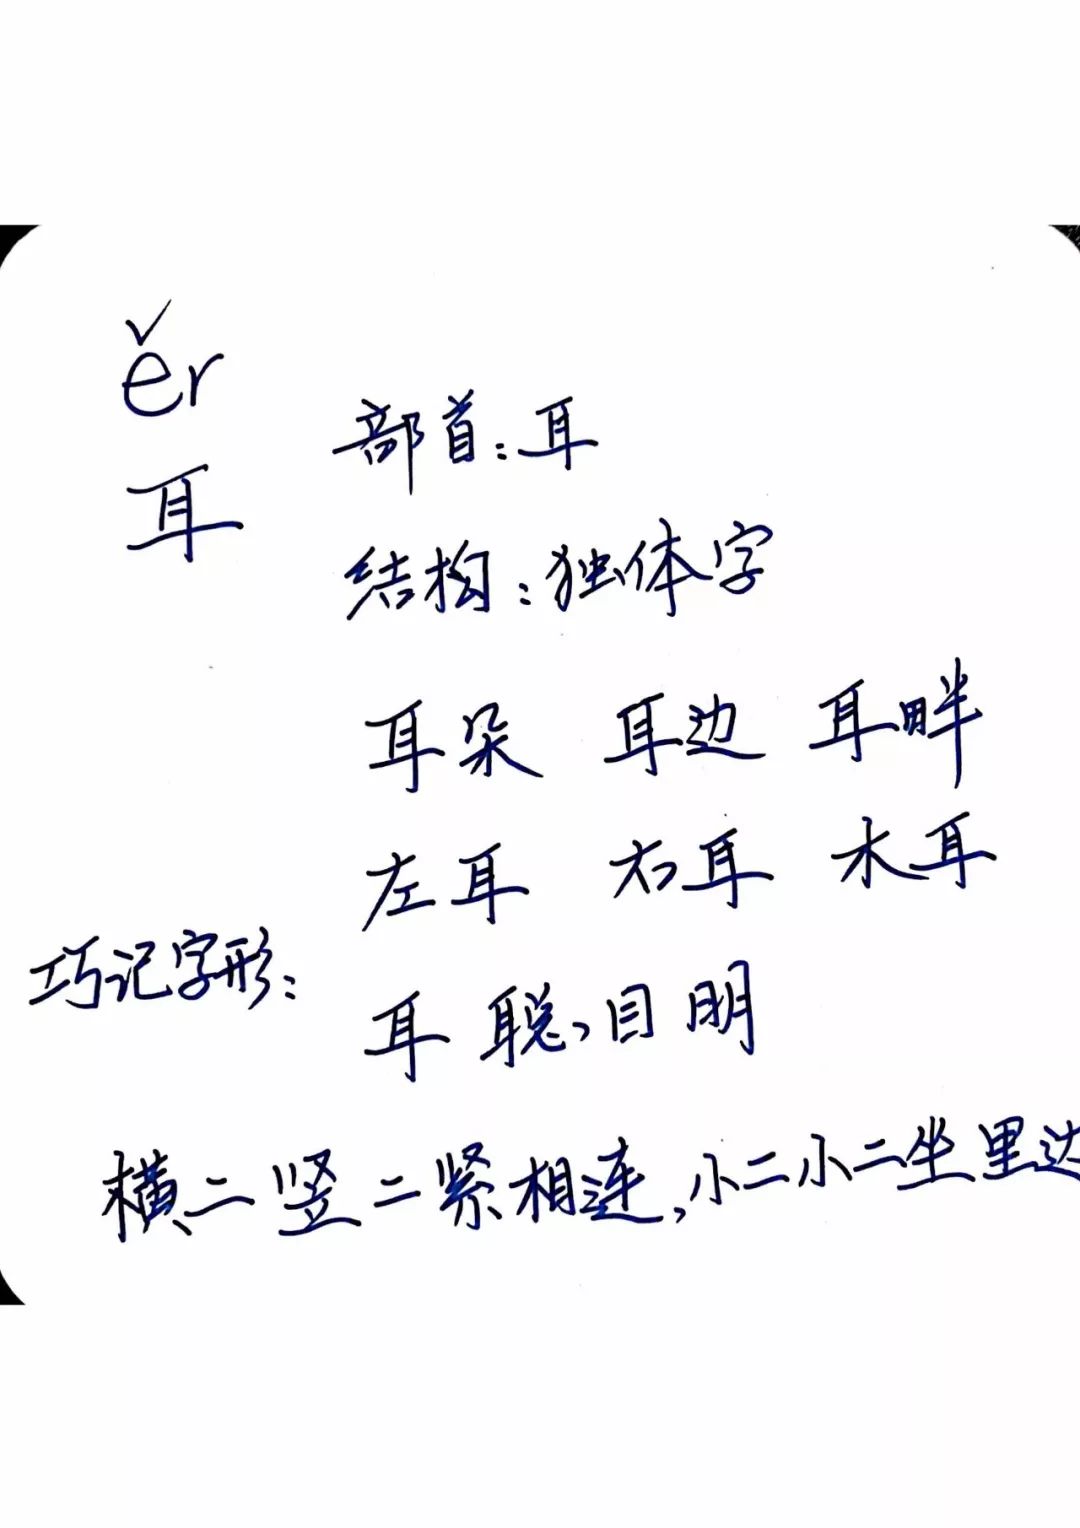 ěr
部首:耳
耳
结构:独体字
耳朵 耳边 耳畔
左耳 右耳 木耳
巧记字形:
耳聪,目明
横二竖二紧相连,小二小二坐里